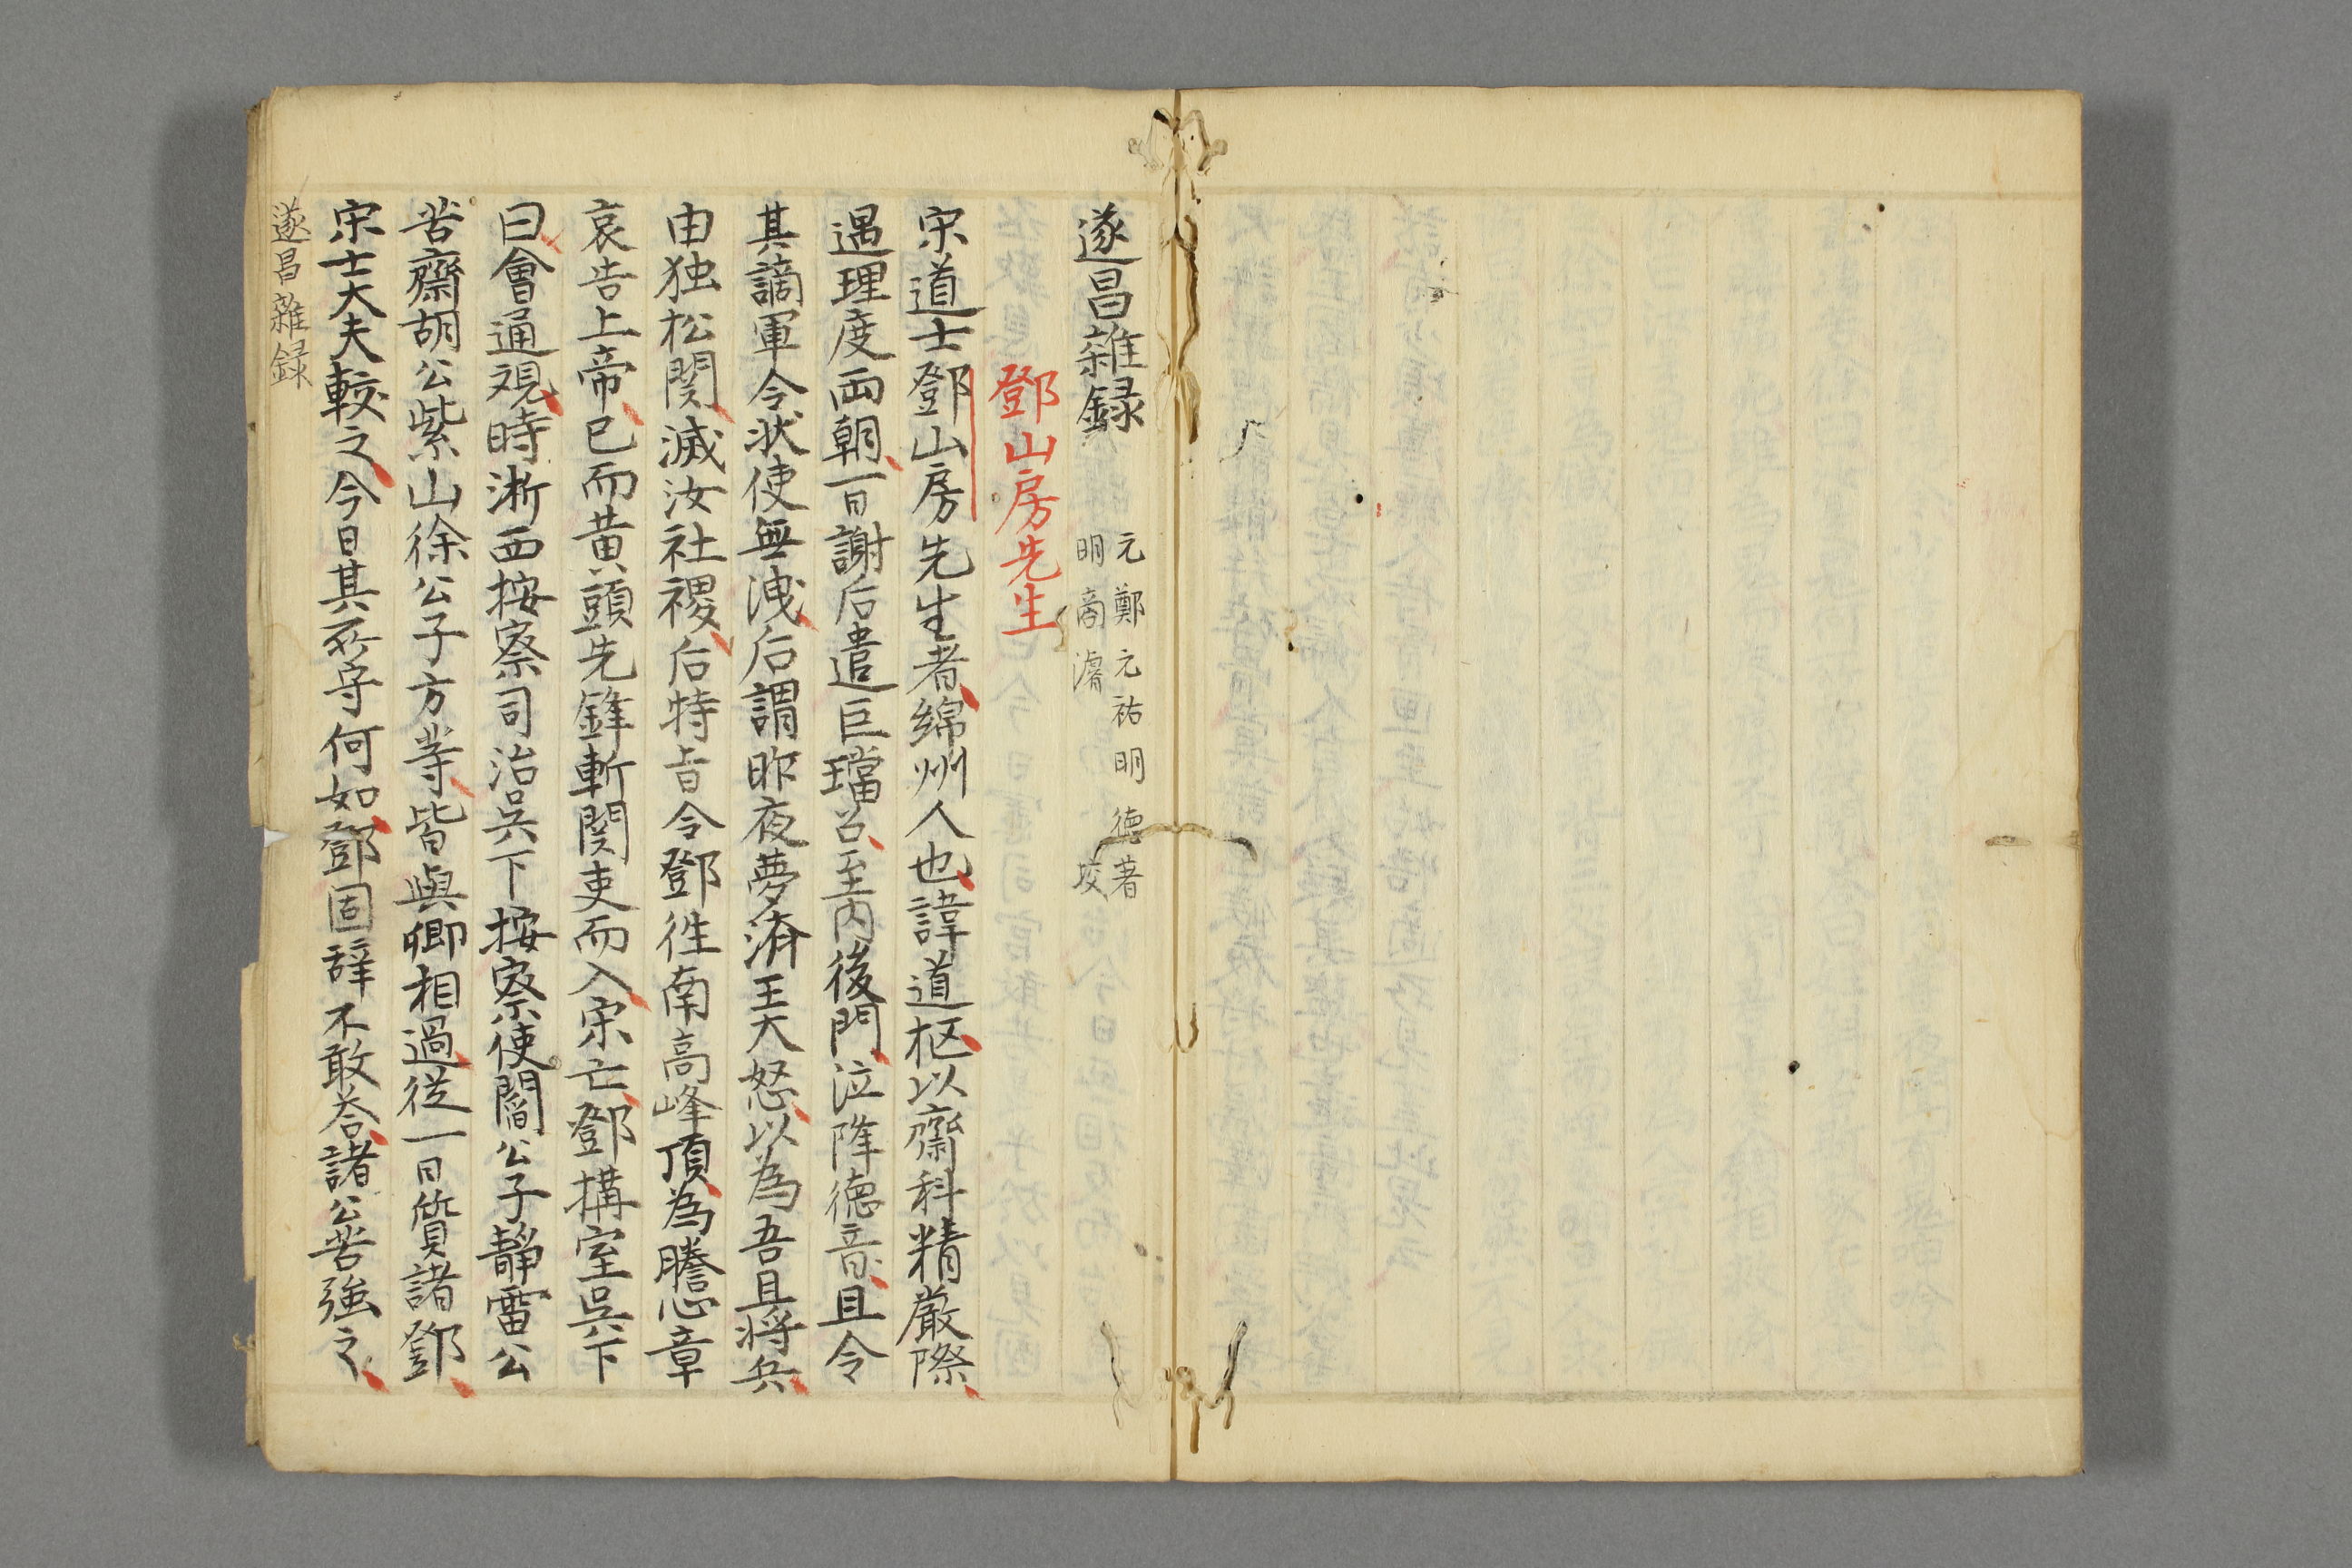 遂昌雜録
元鄭元祐明德著
明商濬校
鄧山房先生
宋道士鄧山房先生者綿州人也諱道枢以齋科精厳際
遇理度両朝一日謝后遣巨璫召至内後門泣降德音且令
其謫軍令状使無洩后謂昨夜夢済王大怒以為吾且将兵
由独松関滅汝社稷后特旨令鄧徃南高峰頂為謄心章
哀告上帝已而黄頭先鋒斬関吏而入宋亡鄧搆室呉下
曰會通观時淅西按察司治呉下按察使閻公子靜雷公
苦齋胡公紫山徐公子方等皆與卿相過從一日質諸鄧
宋士大夫較之今日其所守何如鄧固辞不敢荅諸公苦強之
遂昌雜録